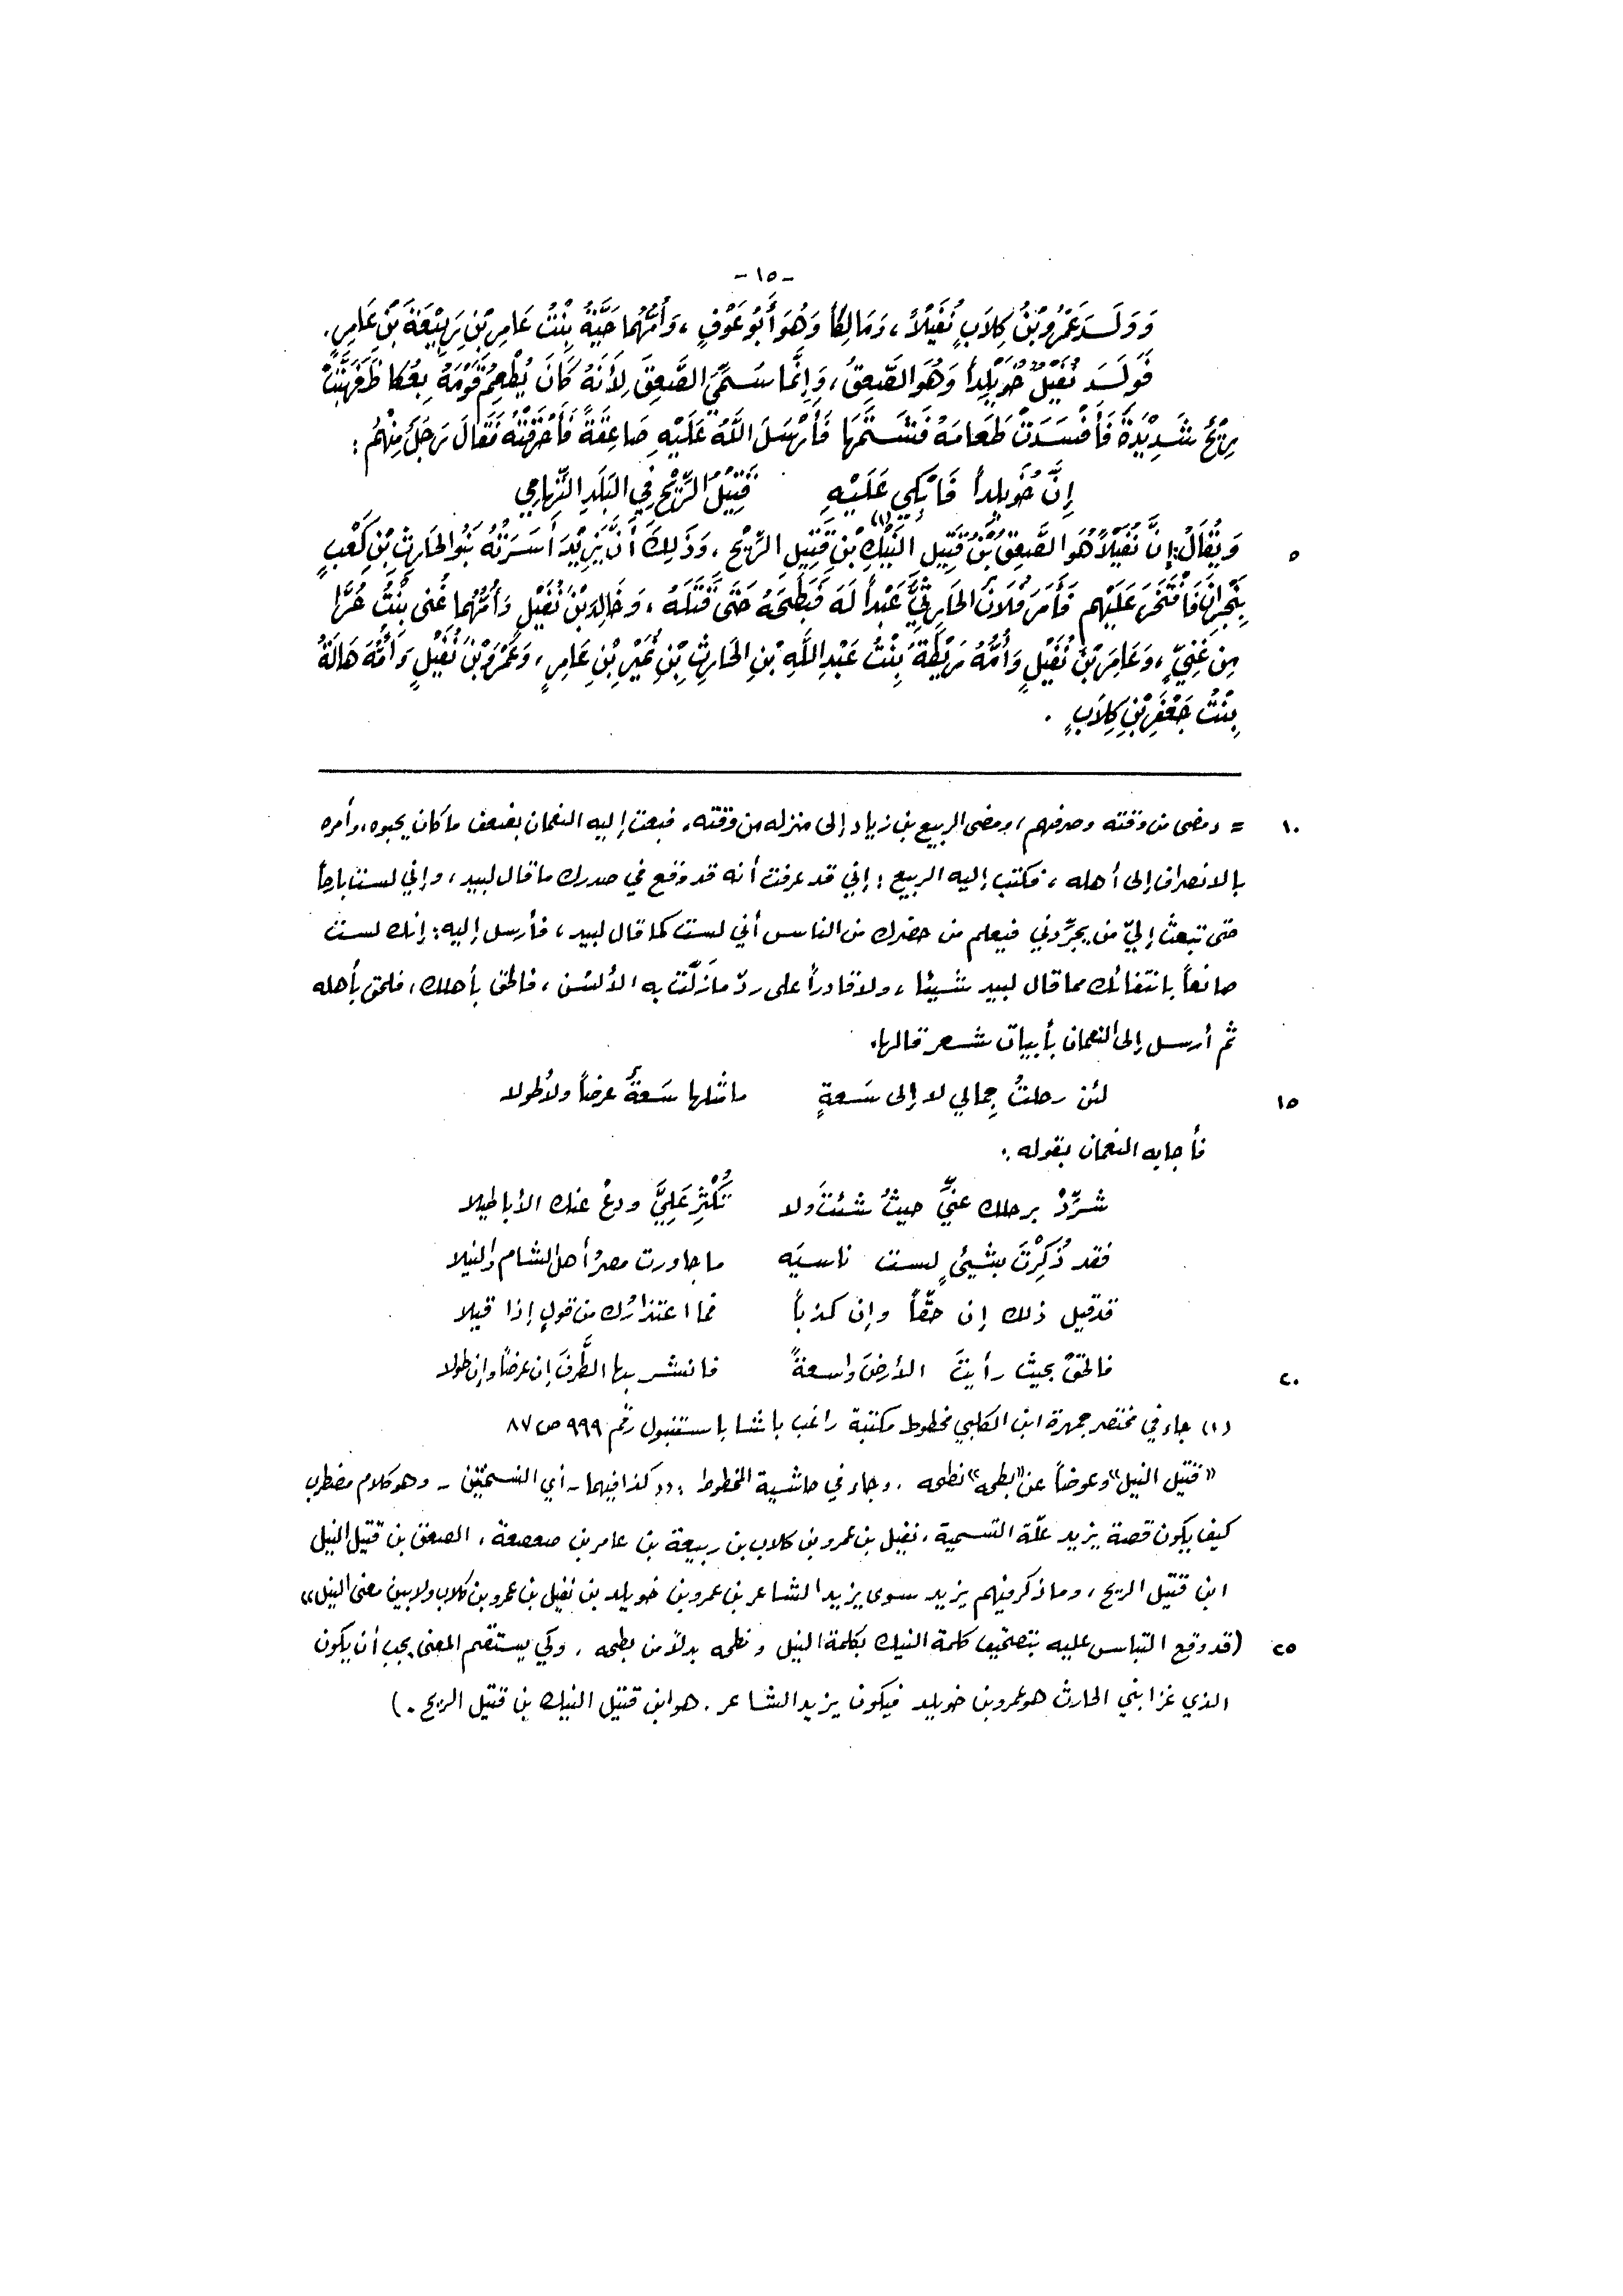 - ١٥ -
وَوَلَسدَ عَمْرُو بْنُ كِلَابٍ نُفَيْلاً، وَمَالِكاً وَهُوَ أَبُو عَوْفٍ، وَأُمُّهُما حَيَّةُ بِنْتُ عَامِرِ بْنِ رَبِيْعَةَ بْنِ عَامِرٍ.
فَوَلَسدَ نُفَيْلٌ خُوَيْلِداً وَهُوَ الصَّعِقُ، وَإِنَّمَا سُمِّيَ الصَّعِقَ لِأَنَهُ كَانَ يُطْعِمُ قَوْمَهُ بِعُكَاظَ فَهَبَّتْ
رِيْحٌ شَدِيْدَةٌ فَأَفْسَدَتْ طَعَامَهُ فَشَتَمَهَا فَأَرْسَلَ اللَّهُ عَلَيْهِ صَاعِقَةً فَأَحْرَقَتْهُ فَقَالَ رَجُلٌ مِنْهُم :
إِنَّ خُوَيلِداً فَابْكِي عَلَيْهِ قَتِيْلُ الرِّيْحِ فِي البَلَدِ التِّهَامِي
٥ وَيُقَالُ: إِنَّ نُفَيْلاً هُوَ الصَّعِقُ بْنُ قَتِيلِ النَّيْكِ (١) بْنِ قَتِيلِ الرِّيْحِ، وَذَلِكَ أَنَّ يَزِيْدَ أَسَرَتْهُ بَنُو الحَارِثِ بْنِ كَعْبٍ
بِنَجْرَانَ فَافْتَخَرَ عَلَيْهِم فَأَمَرَ فُلَانٌ الحَارِثِيُّ عَبْداً لَهَ فَبَطَحَهُ حَتَّى قَتَلَهُ، وَخَالِدَ بْنَ نُفَيْلٍ وَأُمُّهُما غُنَى بِنْتُ حُرَّا
مِن غَنِيٍّ، وَعَامِرَ بْنَ نُفَيْلٍ وَأُمُّهُ رَيْطَةُ بِنْتُ عَبْدِ اللَّهِ بْنِ الحَارِثِ بْنِ نُمَيْرِ بْنِ عَامِرٍ، وَعَمْرَو بْنَ نُفَيْلٍ وَأُمُّهُ هَالَةُ
بِنْتُ جَعْفَرِ بْنِ كِلَابٍ .
١٠ = ومضى من وقته وصرفهم، ومضى الربيع بن زياد إلى منزله من وقته. فبعث إليه النعمان بضعف ما كان يحبوه، وأمره
بالانصراف إلى أهله، فكتب إليه الربيع : إني قد عرفت أنه قد وقع في صدرك ما قال لبيد، وإني لست بارحاً
حتى تبعث إليّ من يجرّدني فيعلم من حضرك من الناس أني لست كما قال لبيد، فأرسل إليه: إنك لست
صانعاً بانتفائك مما قال لبيد شيئا، ولا قادراً على ردّ ما زلَّت به الألسُن، فالحق بأهلك، فلحق بأهله
ثم أرسل إلى النعمان بأبيات شعر قالها.
١٥ لئن رحلتُ جِمالي لا إلى سَعةٍ ما مثلها سَعةٌ عرضاً ولا طولا
فأجابه النعمان بقوله :
شرِّدْ برحلك عنيّ حيثُ شئتَ ولا تُكْثِرْ عَلَيَّ ودعْ عنك الأباطيلا
فقد ذُكِرْتَ بشيئٍ لست ناسيَه ما جاورت مصرُ أهل الشام والنيلا
قد قيل ذلك إن حقّاً وإن كذباً فما اعتذارُك من قولٍ إذا قيلا
٢٠ فالحَقْ بحيث رأيتَ الأرضَ واسعةً فانشر بها الطَّرفَ إن عرضاً وإن طولا
(١) جاء في مختصر جمهرة ابن الكلبي مخطوط مكتبة راغب باشا باستنبول رقم ٩٩٩ ص ٨٧
((قتيل النيل)) وعوضاً عن ((بطحه)) نطحه. وجاء في حاشية المخطوط : ((كذا فيهما - أي النسختين - وهو كلام مضطرب
كيف يكون قصة يزيد علّة التسمية. نفيل بن عمرو بن كلاب بن ربيعة بن عامر بن صعصعة. الصعق بن قتيل النيل
ابن قتيل الريح، وما ذكر فيهم يزيد سوى يزيد الشاعر بن عمرو بن خويلد بن نفيل بن عمرو بن كلاب ولا بين معنى النيل))
٢٥ (قد وقع التباس عليه بتصحّيف كلمة النيك بكلمة النيل ونطحه بدلاً من بطحه. وكي يستقيم المعنى يجب أن يكون
الذي غزا بني الحارث هو عمرو بن خويلد فيكون يزيد الشاعر. هو ابن قتيل النيك بن قتيل الريح.)